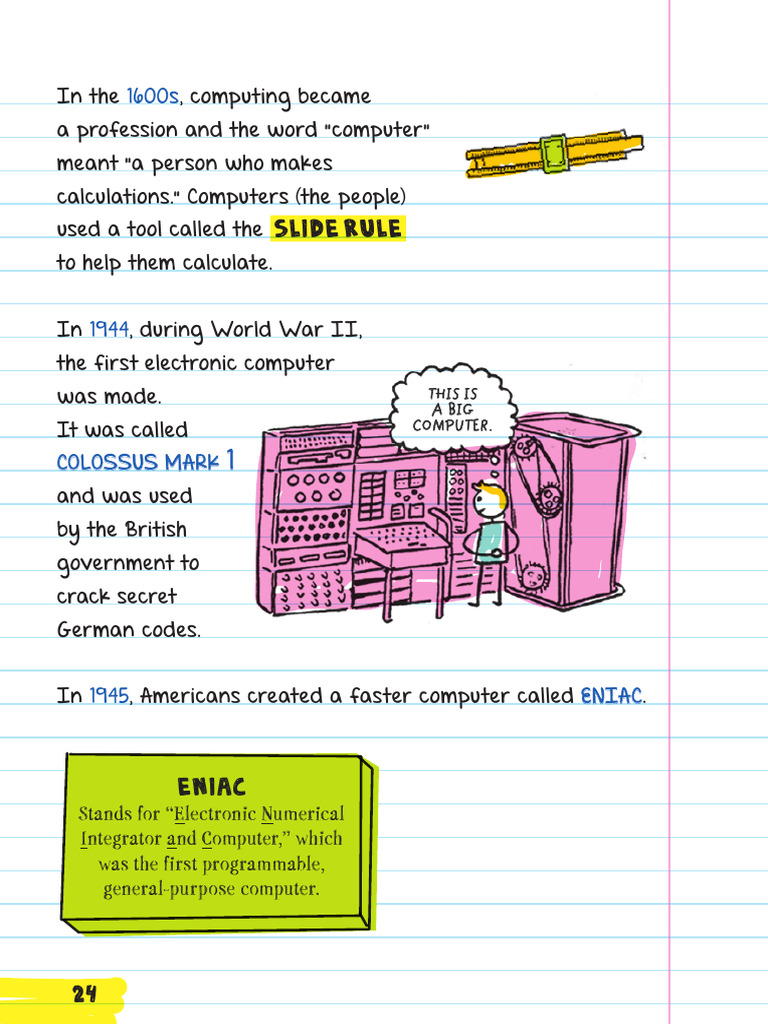 In the 1600s, computing became
a profession and the word "computer"
meant "a person who makes
calculations." Computers (the people)
used a tool called the SLIDE RULE
to help them calculate.
In 1944, during World War II,
the first electronic computer
was made.
It was called
COLOSSUS MARK 1
and was used
by the British
government to
crack secret
German codes.
THIS IS
A BIG
COMPUTER.
In 1945, Americans created a faster computer called ENIAC.
ENIAC
Stands for “Electronic Numerical
Integrator and Computer,” which
was the first programmable,
general-purpose computer.
24